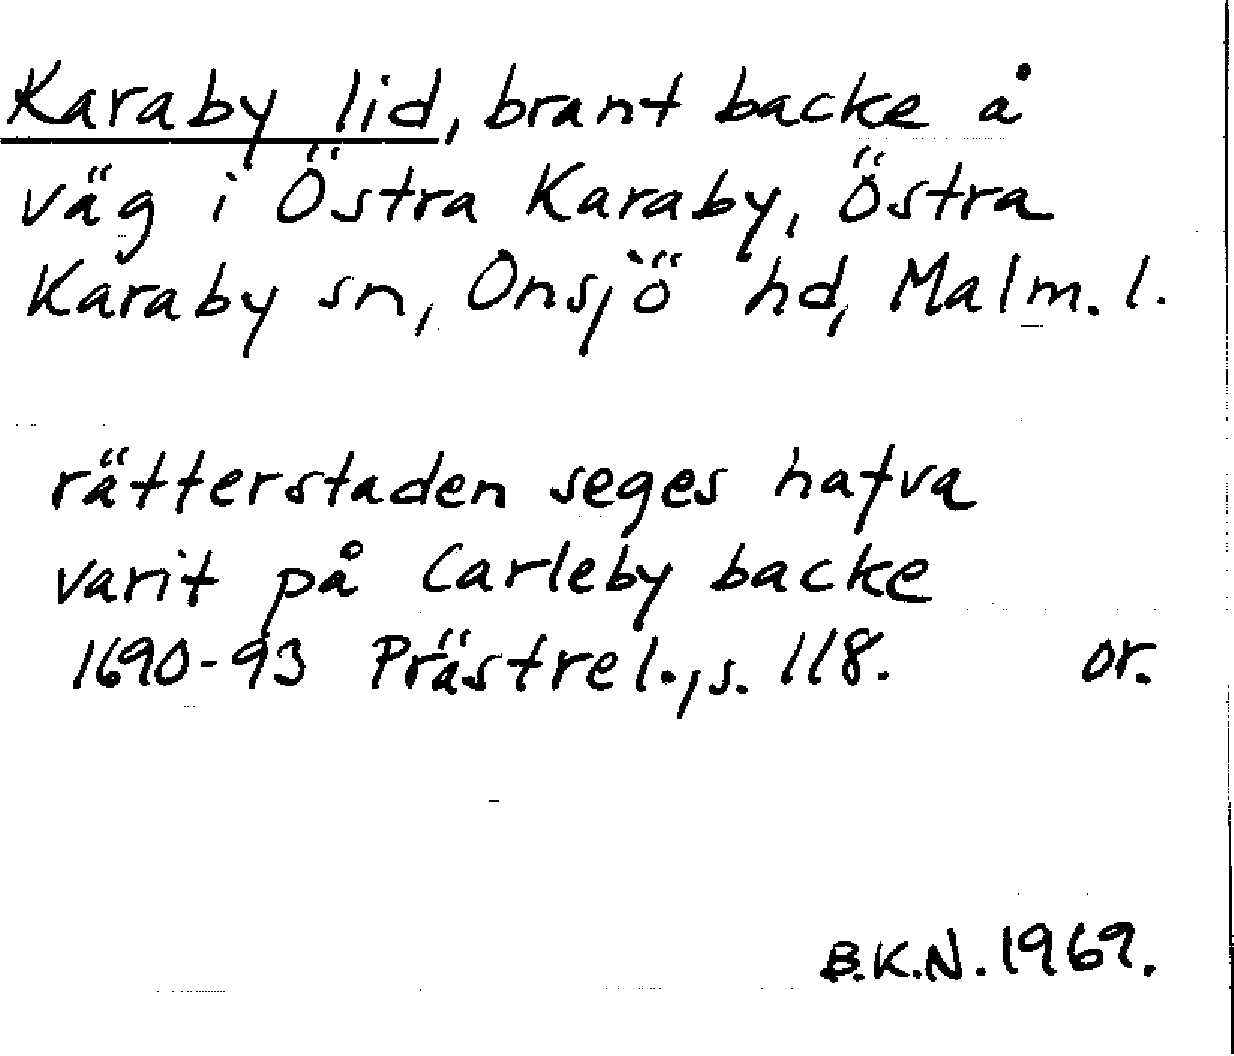 Karaby lid, brant backe å
väg i Östra Karaby, Östra
Karaby sn, Onsjö hd, Malm. l.
rätterstaden seges hafva
varit på Carleby backe
1690-93 Prästrel., s. 118. or.
B.K.N. 1969.